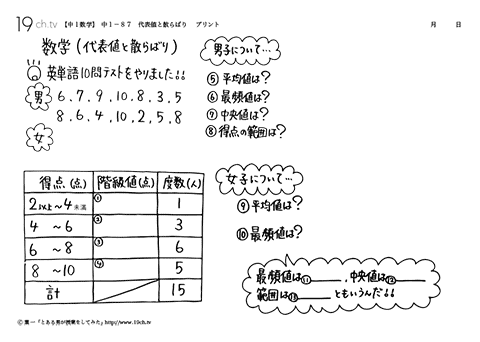 19ch.tv 【中1数学】 中1-87 代表値と散らばり プリント 月 日
数学(代表値と散らばり)
英単語10問テストをやりました!!
男 6.7.9.10.8.3.5
8.6.4.10.2.5.8
女
男子について…
⑤平均値は?
⑥最頻値は?
⑦中央値は?
⑧得点の範囲は?
得点(点) 階級値(点) 度数(人)
2以上~4未満 ① 1
4 ~6 ② 3
6 ~8 ③ 6
8 ~10 ④ 5
計 15
女子について…
⑨平均値は?
⑩最頻値は?
最頻値は⑪______,中央値は⑫______
範囲は⑬______ともいうんだ!!
© 葉一「とある男が授業をしてみた」http://www.19ch.tv